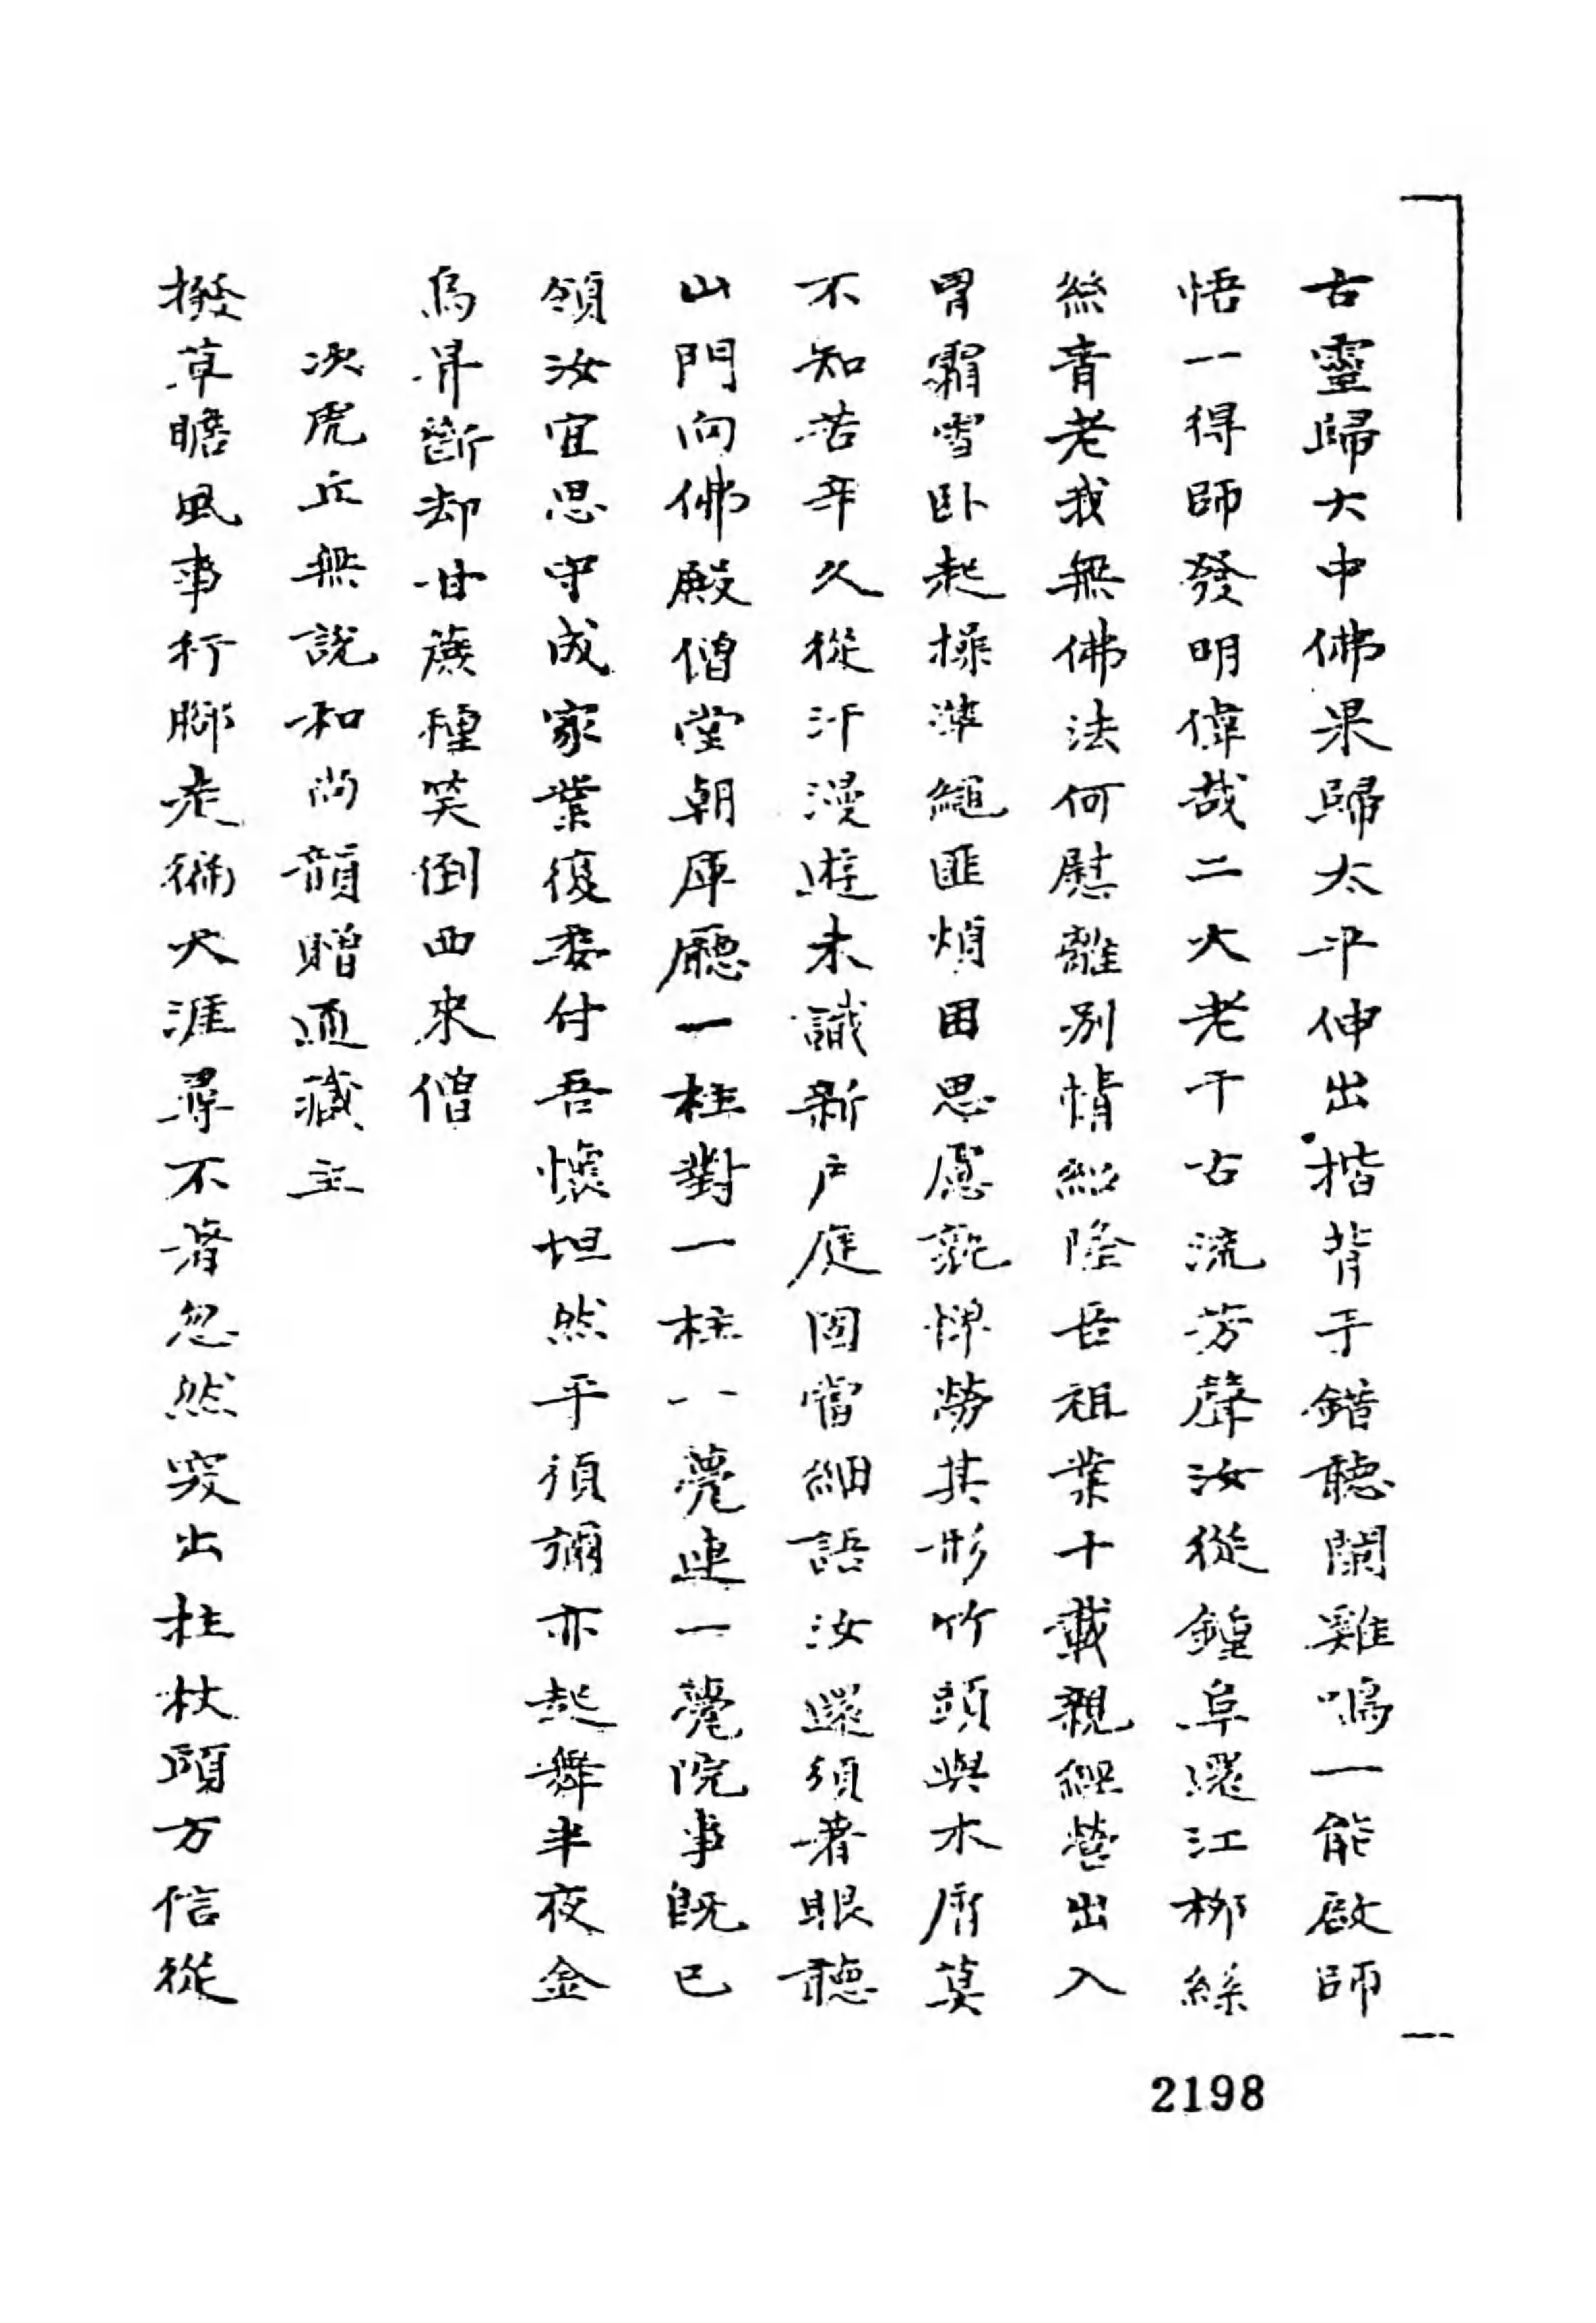 古靈歸大中佛果歸太平伸出揩背手錯聽閙雞鳴一能啟師
悟一得師發明偉哉二大老千古流芳聲汝從鐘阜還江柳絲
絲青老我無佛法何慰離別情紹隆吾祖業十載親經營出入
冒霜雪卧起操準繩匪煩困思慮孰憚勞其形竹頭與木屑莫
不知苦辛久從汗漫遊未識新户庭固當細語汝還須著眼聽
山門向佛殿僧堂朝庫廳一柱對一柱八甍連一甍院事既已
領汝宜思守成家業復委付吾懷坦然平須彌亦起舞半夜金
烏昇斷却甘蔗種笑倒西來僧
次虎丘無説和尚韻贈迪藏主
撥草瞻風事行脚走徧天涯尋不着忽然突出柱杖頭方信從
2198